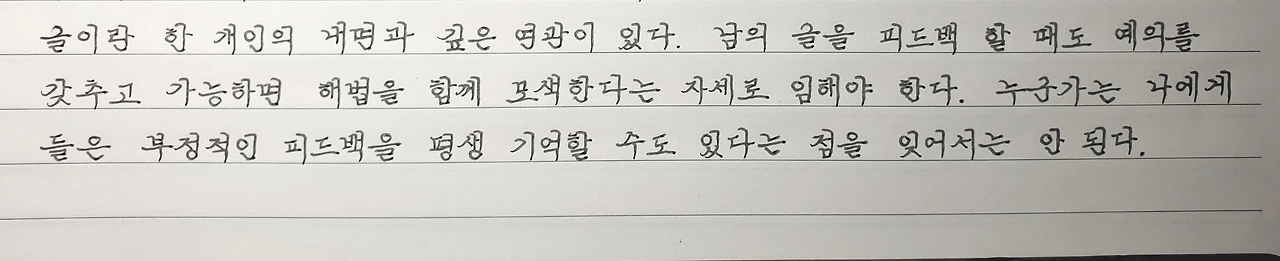 글이란 한 개인의 내면과 깊은 연관이 있다. 남의 글을 피드백 할 때도 예의를
갖추고 가능하면 해법을 함께 모색한다는 자세로 임해야 한다. 누군가는 나에게
들은 부정적인 피드백을 평생 기억할 수도 있다는 점을 잊어서는 안 된다.